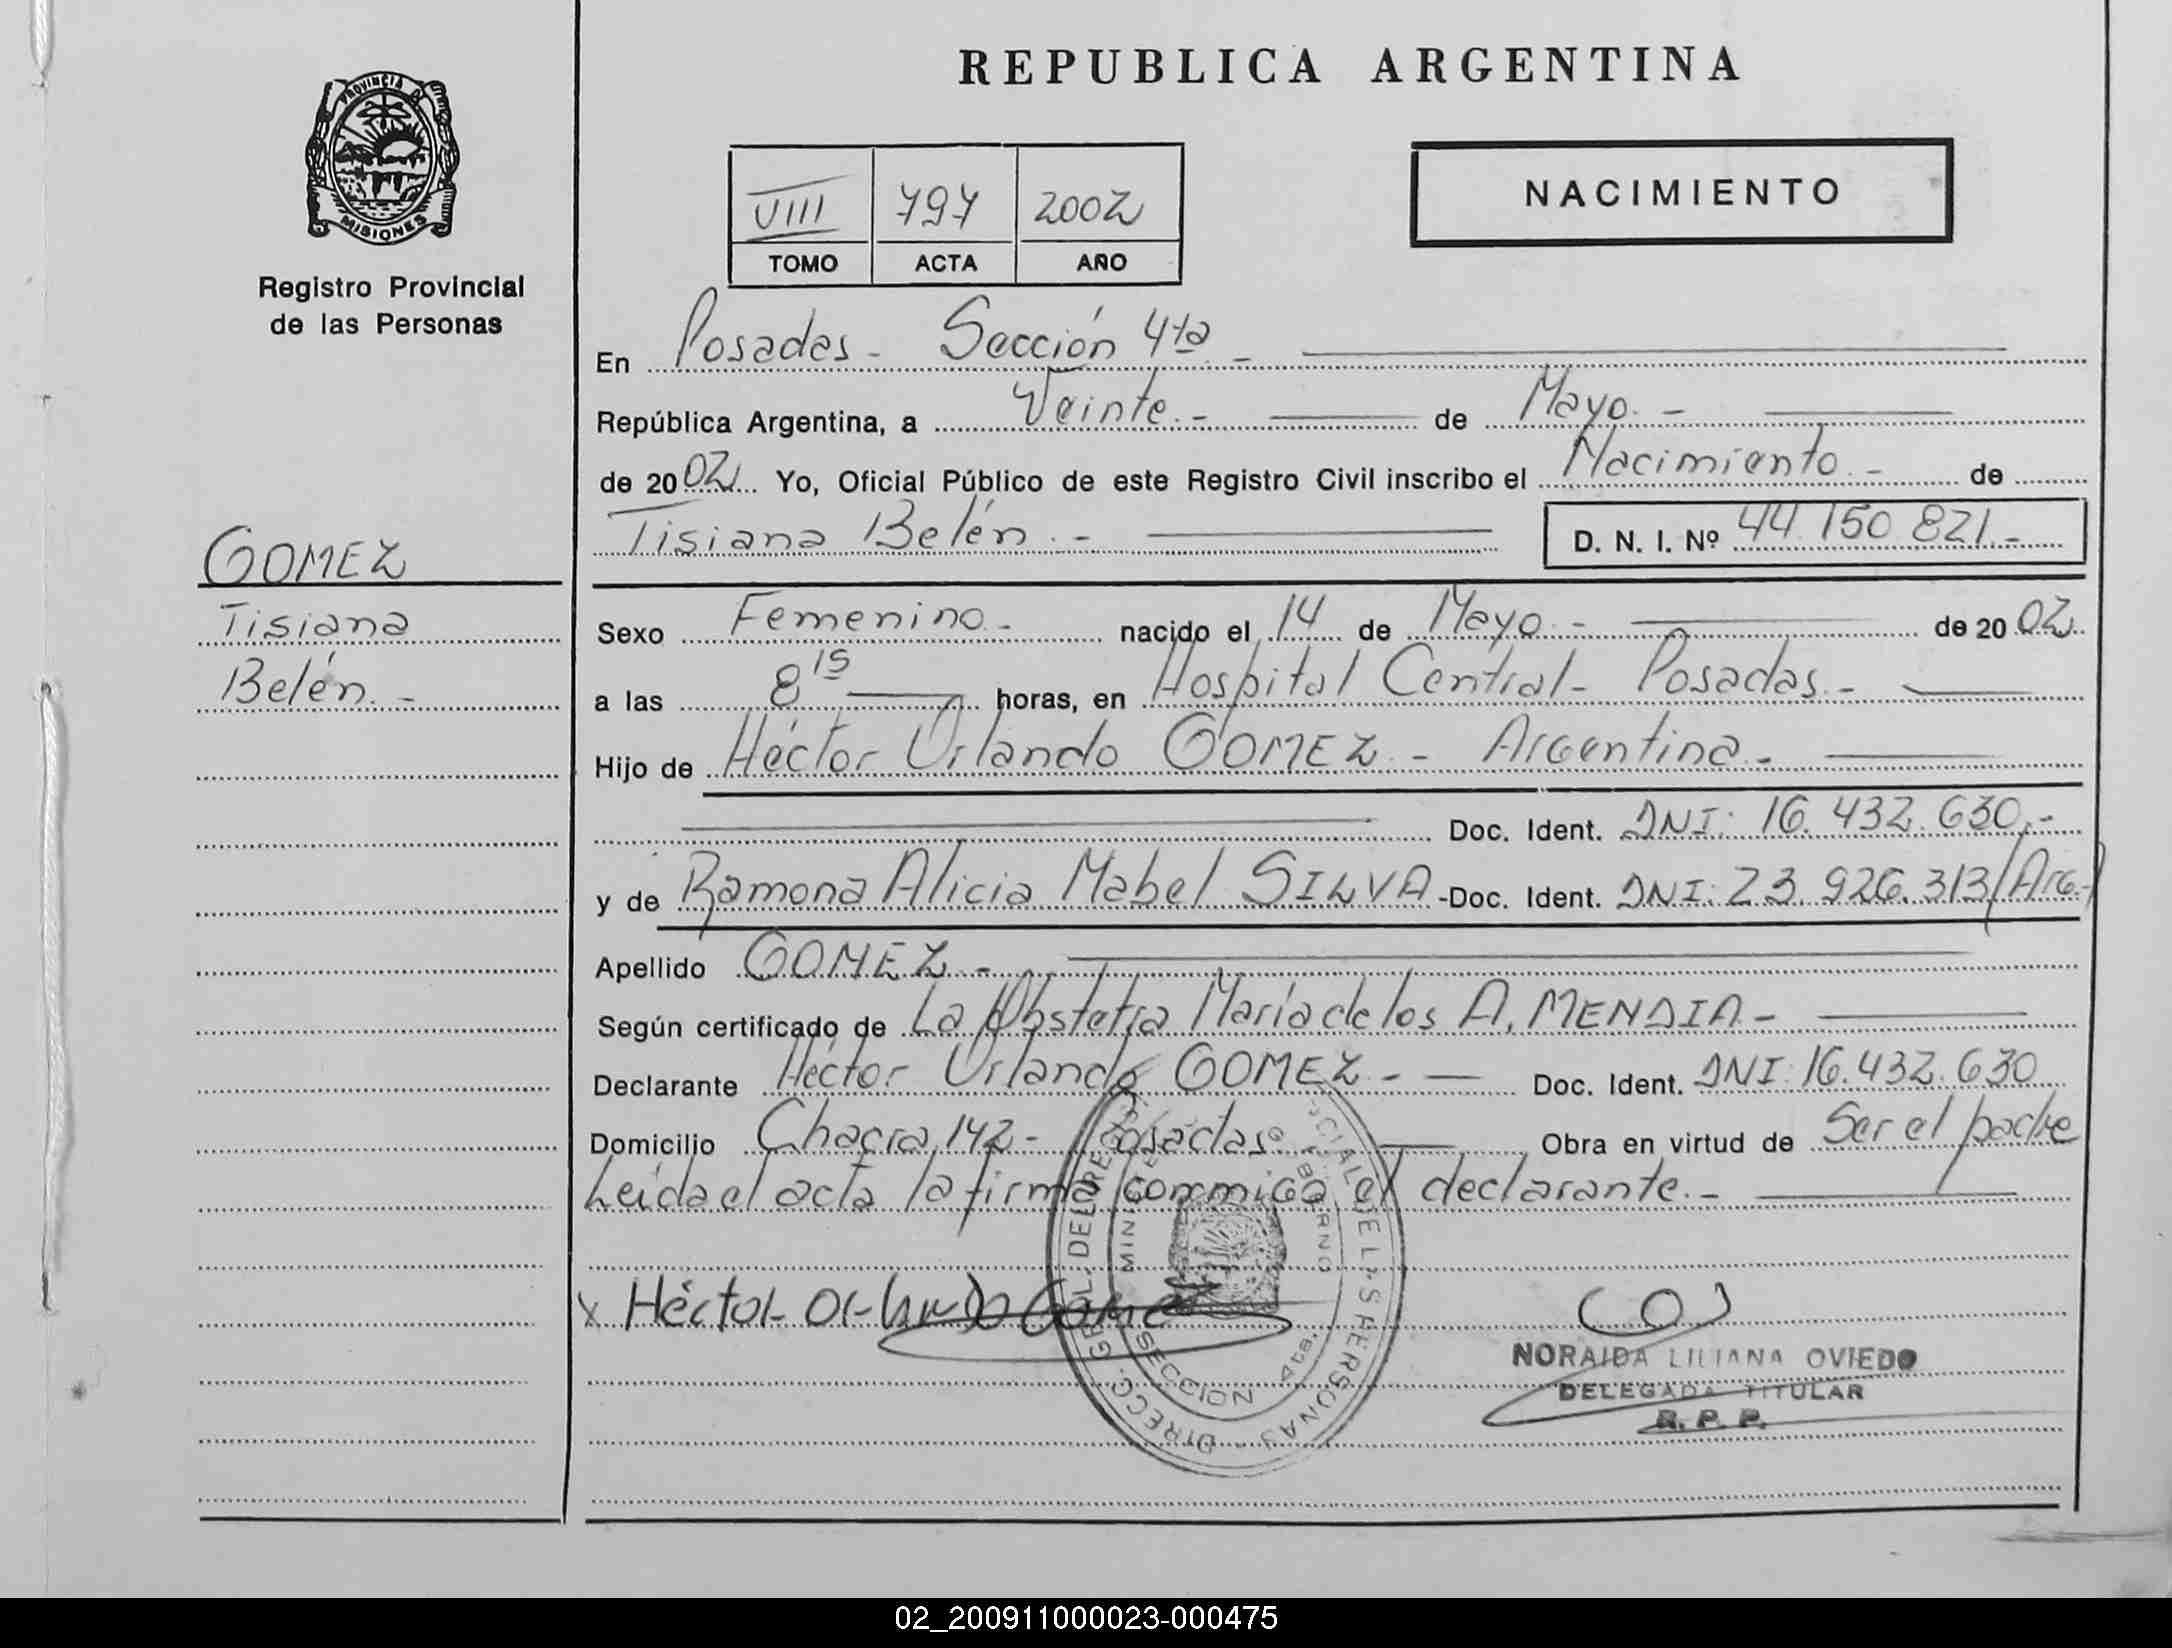 REPUBLICA ARGENTINA
PROVINCIA D
MISIONES
Registro Provincial
de las Personas
NACIMIENTO
VIII 797 2002
TOMO ACTA AÑO
En Posadas - Sección 4ta -
República Argentina, a Veinte.- de Mayo.-
de 2002 Yo, Oficial Público de este Registro Civil inscribo el Nacimiento.- de
Tisiana Belén.- D. N. I. Nº 44.150.821.-
GOMEZ
Tisiana
Belén.-
Sexo Femenino.- nacido el 14 de Mayo.- de 2002.
a las 8 15 horas, en Hospital Central - Posadas.-
Hijo de Héctor Orlando GOMEZ.- Argentina.-
Doc. Ident. DNI: 16.432.630.-
y de Ramona Alicia Mabel SILVA -Doc. Ident. DNI: 23.926.313/Arg.-/
Apellido GOMEZ.-
Según certificado de La Obstetra María de los A. MENDIA.-
Declarante Héctor Orlando GOMEZ.- Doc. Ident. DNI: 16.432.630
Domicilio Chacra 142 - Posadas. Obra en virtud de Ser el padre
Leída el acta la firma conmigo el declarante.-
x Héctor Orlando Gomez
DIRECC. GRAL. DEL RE
SECCION 4ta.
NORAIDA LILIANA OVIEDO
DELEGADA TITULAR
R. P. P.
02_200911000023-000475